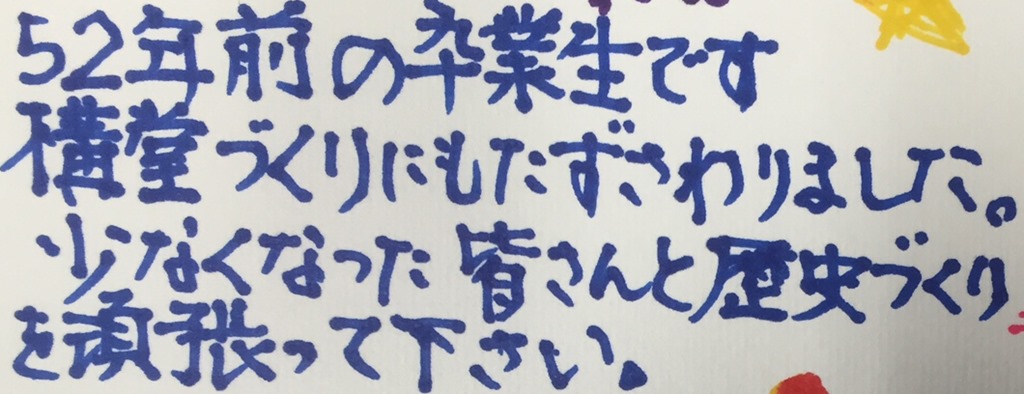 52年前の卒業生です
構堂づくりにもたずさわりました。
少なくなった皆さんと歴史づくり
を頑張って下さい。